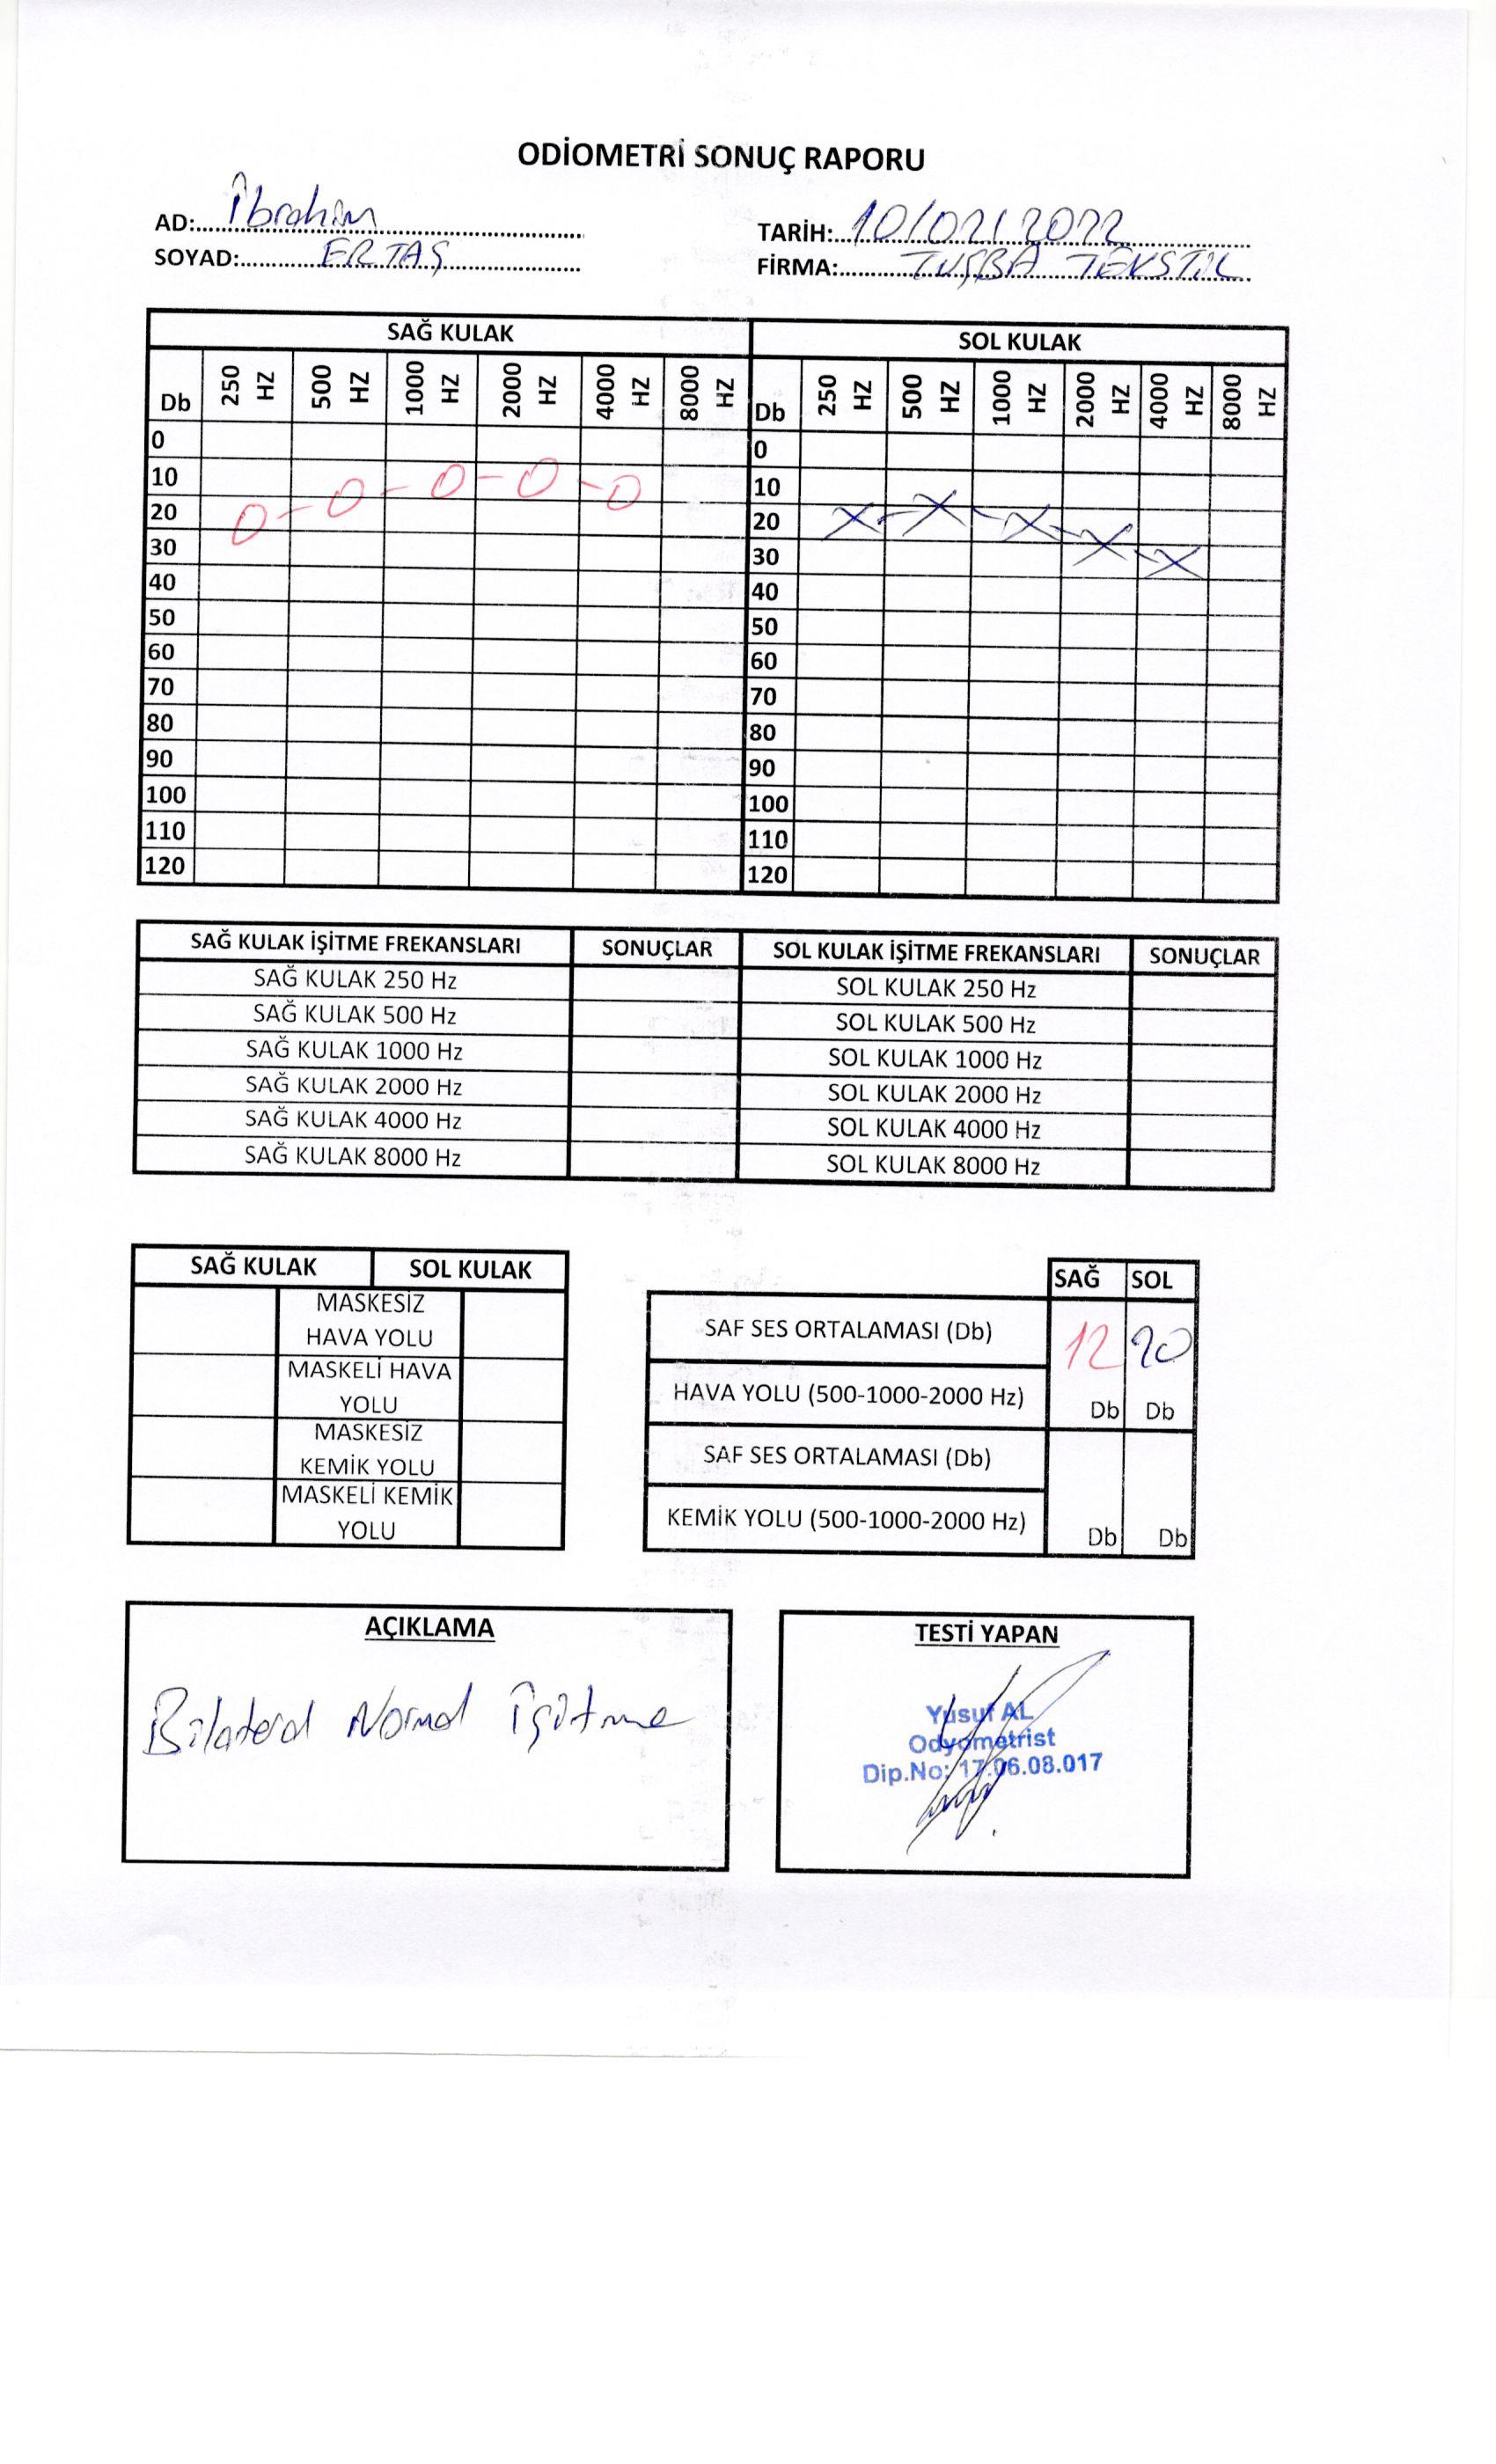 ODİOMETRİ SONUÇ RAPORU
AD: İbrahim TARİH: 10/02/2022
SOYAD: ERTAŞ FİRMA: TUŞBA TEKSTİL
SAĞ KULAK SOL KULAK
Db 250 HZ 500 HZ 1000 HZ 2000 HZ 4000 HZ 8000 HZ Db 250 HZ 500 HZ 1000 HZ 2000 HZ 4000 HZ 8000 HZ
0 0
10 10
20 20
30 30
40 40
50 50
60 60
70 70
80 80
90 90
100 100
110 110
120 120
SAĞ KULAK İŞİTME FREKANSLARI SONUÇLAR SOL KULAK İŞİTME FREKANSLARI SONUÇLAR
SAĞ KULAK 250 Hz SOL KULAK 250 Hz
SAĞ KULAK 500 Hz SOL KULAK 500 Hz
SAĞ KULAK 1000 Hz SOL KULAK 1000 Hz
SAĞ KULAK 2000 Hz SOL KULAK 2000 Hz
SAĞ KULAK 4000 Hz SOL KULAK 4000 Hz
SAĞ KULAK 8000 Hz SOL KULAK 8000 Hz
SAĞ KULAK SOL KULAK
MASKESİZ
HAVA YOLU
MASKELİ HAVA
YOLU
MASKESİZ
KEMİK YOLU
MASKELİ KEMİK
YOLU
SAĞ SOL
SAF SES ORTALAMASI (Db) 12 20
HAVA YOLU (500-1000-2000 Hz) Db Db
SAF SES ORTALAMASI (Db)
KEMİK YOLU (500-1000-2000 Hz) Db Db
AÇIKLAMA
Bilateral Normal İşitme
TESTİ YAPAN
Yusuf AL
Odyometrist
Dip.No: 17.06.08.017